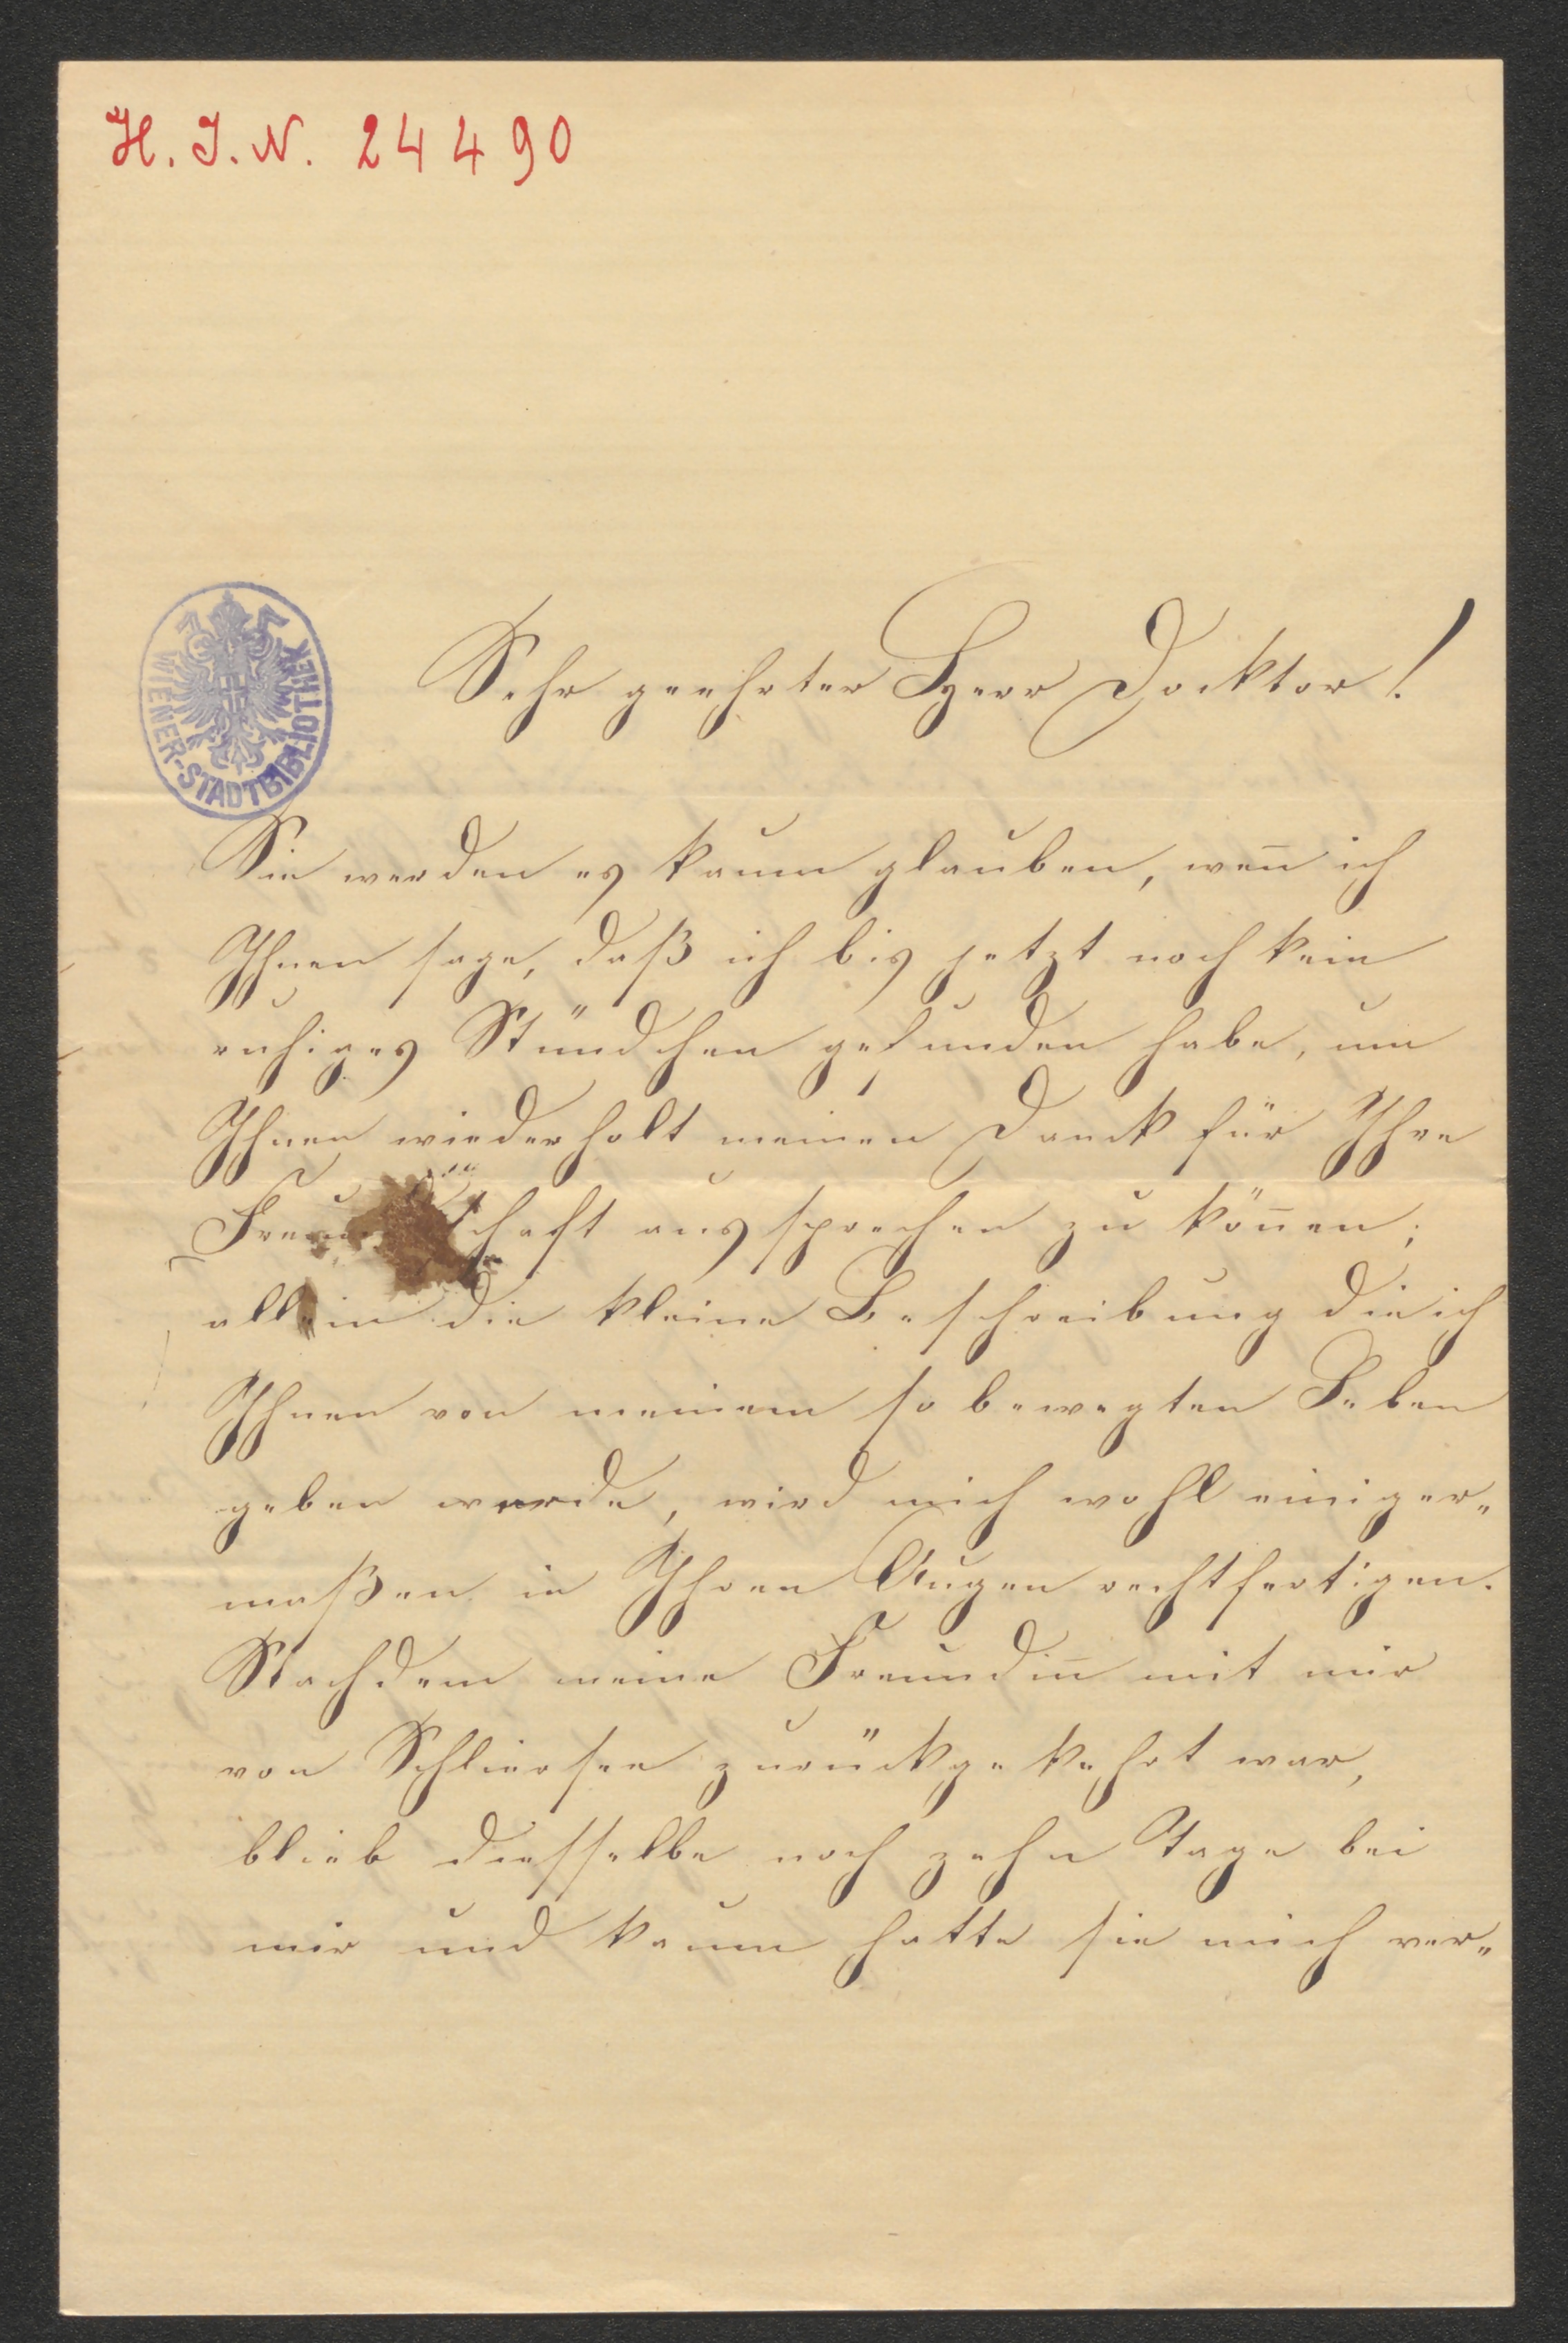 H. I. N. 24490
WIENER-STADTBIBLIOTHEK
Sehr geehrter Herr Docktor!
Sie werden es kaum glauben, weñ ich
Ihnen sage, daß ich bis jetzt noch kein
ruhiges Stündchen gefunden habe, um
Ihnen wiederholt meinen Danck für Ihre
Freundschaft aussprechen zu köñen;
allein die kleine Beschreibung die ich
Ihnen von meinem so bewegten Leben
geben werde, wird mich wohl einiger„
maßen in Ihren Augen rechtfertigen.
Nachdem meine Freundiñ mit mir
von Schliersee zurückgekehrt war,
blieb diesselbe noch zehn Tage bei
mir und kaum hatte sie mich ver„